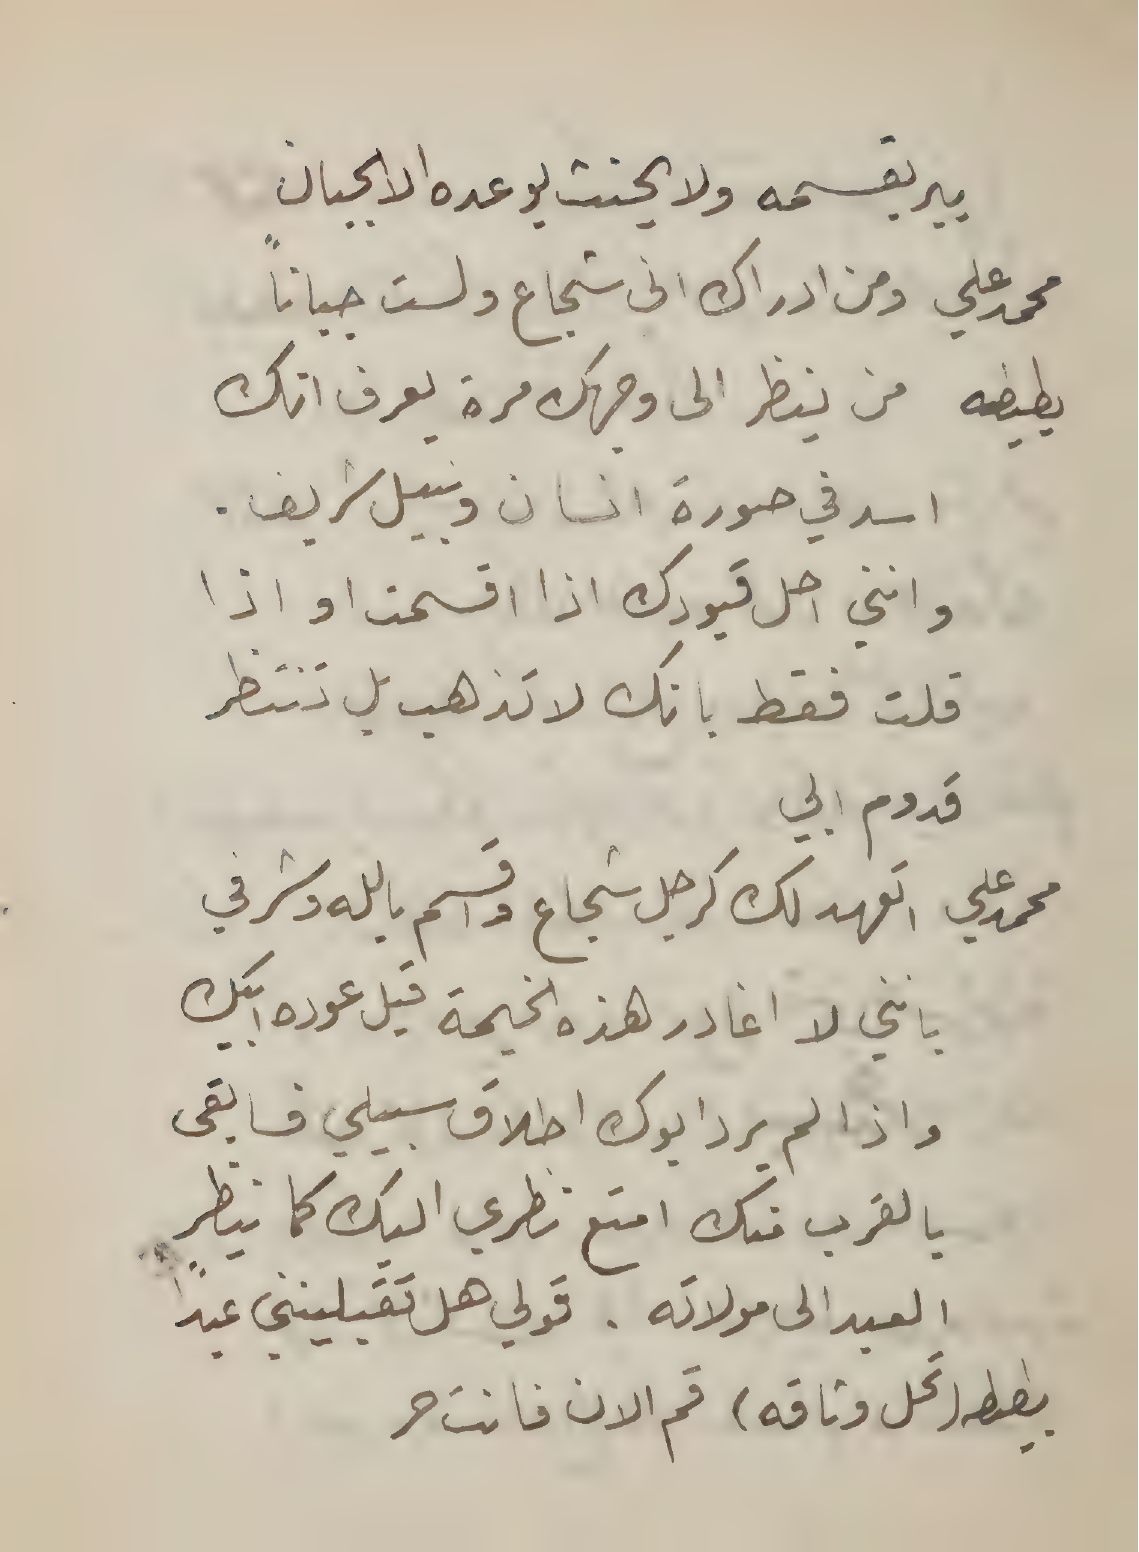 يبر بقسمه ولا يحنث بوعده الا الجبان
محمد علي ومن ادراك اني شجاع ولست جباناً
بطيطه من ينظر الى وجهك مرة يعرف انك
اسد في صورة انسان ونبيل شريف .
وانني احل قيودك اذا اقسمت او اذا
قلت فقط بانك لا تذهب بل تنتظر
قدوم ابي
محمد علي اتعهد لك كرجل شجاع واقسم بالله وشرفي
بانني لا اغادر هذه الخيمة قبل عوده ابيك
واذا لم يرد ابوك اطلاق سبيلي فسابقى
بالقرب منك امتع نظري اليك كما ينظر
العبد الى مولاته . قولي هل تقبلينني عبداً
بطيطه (تحل وثاقه) قم الان فانت حر